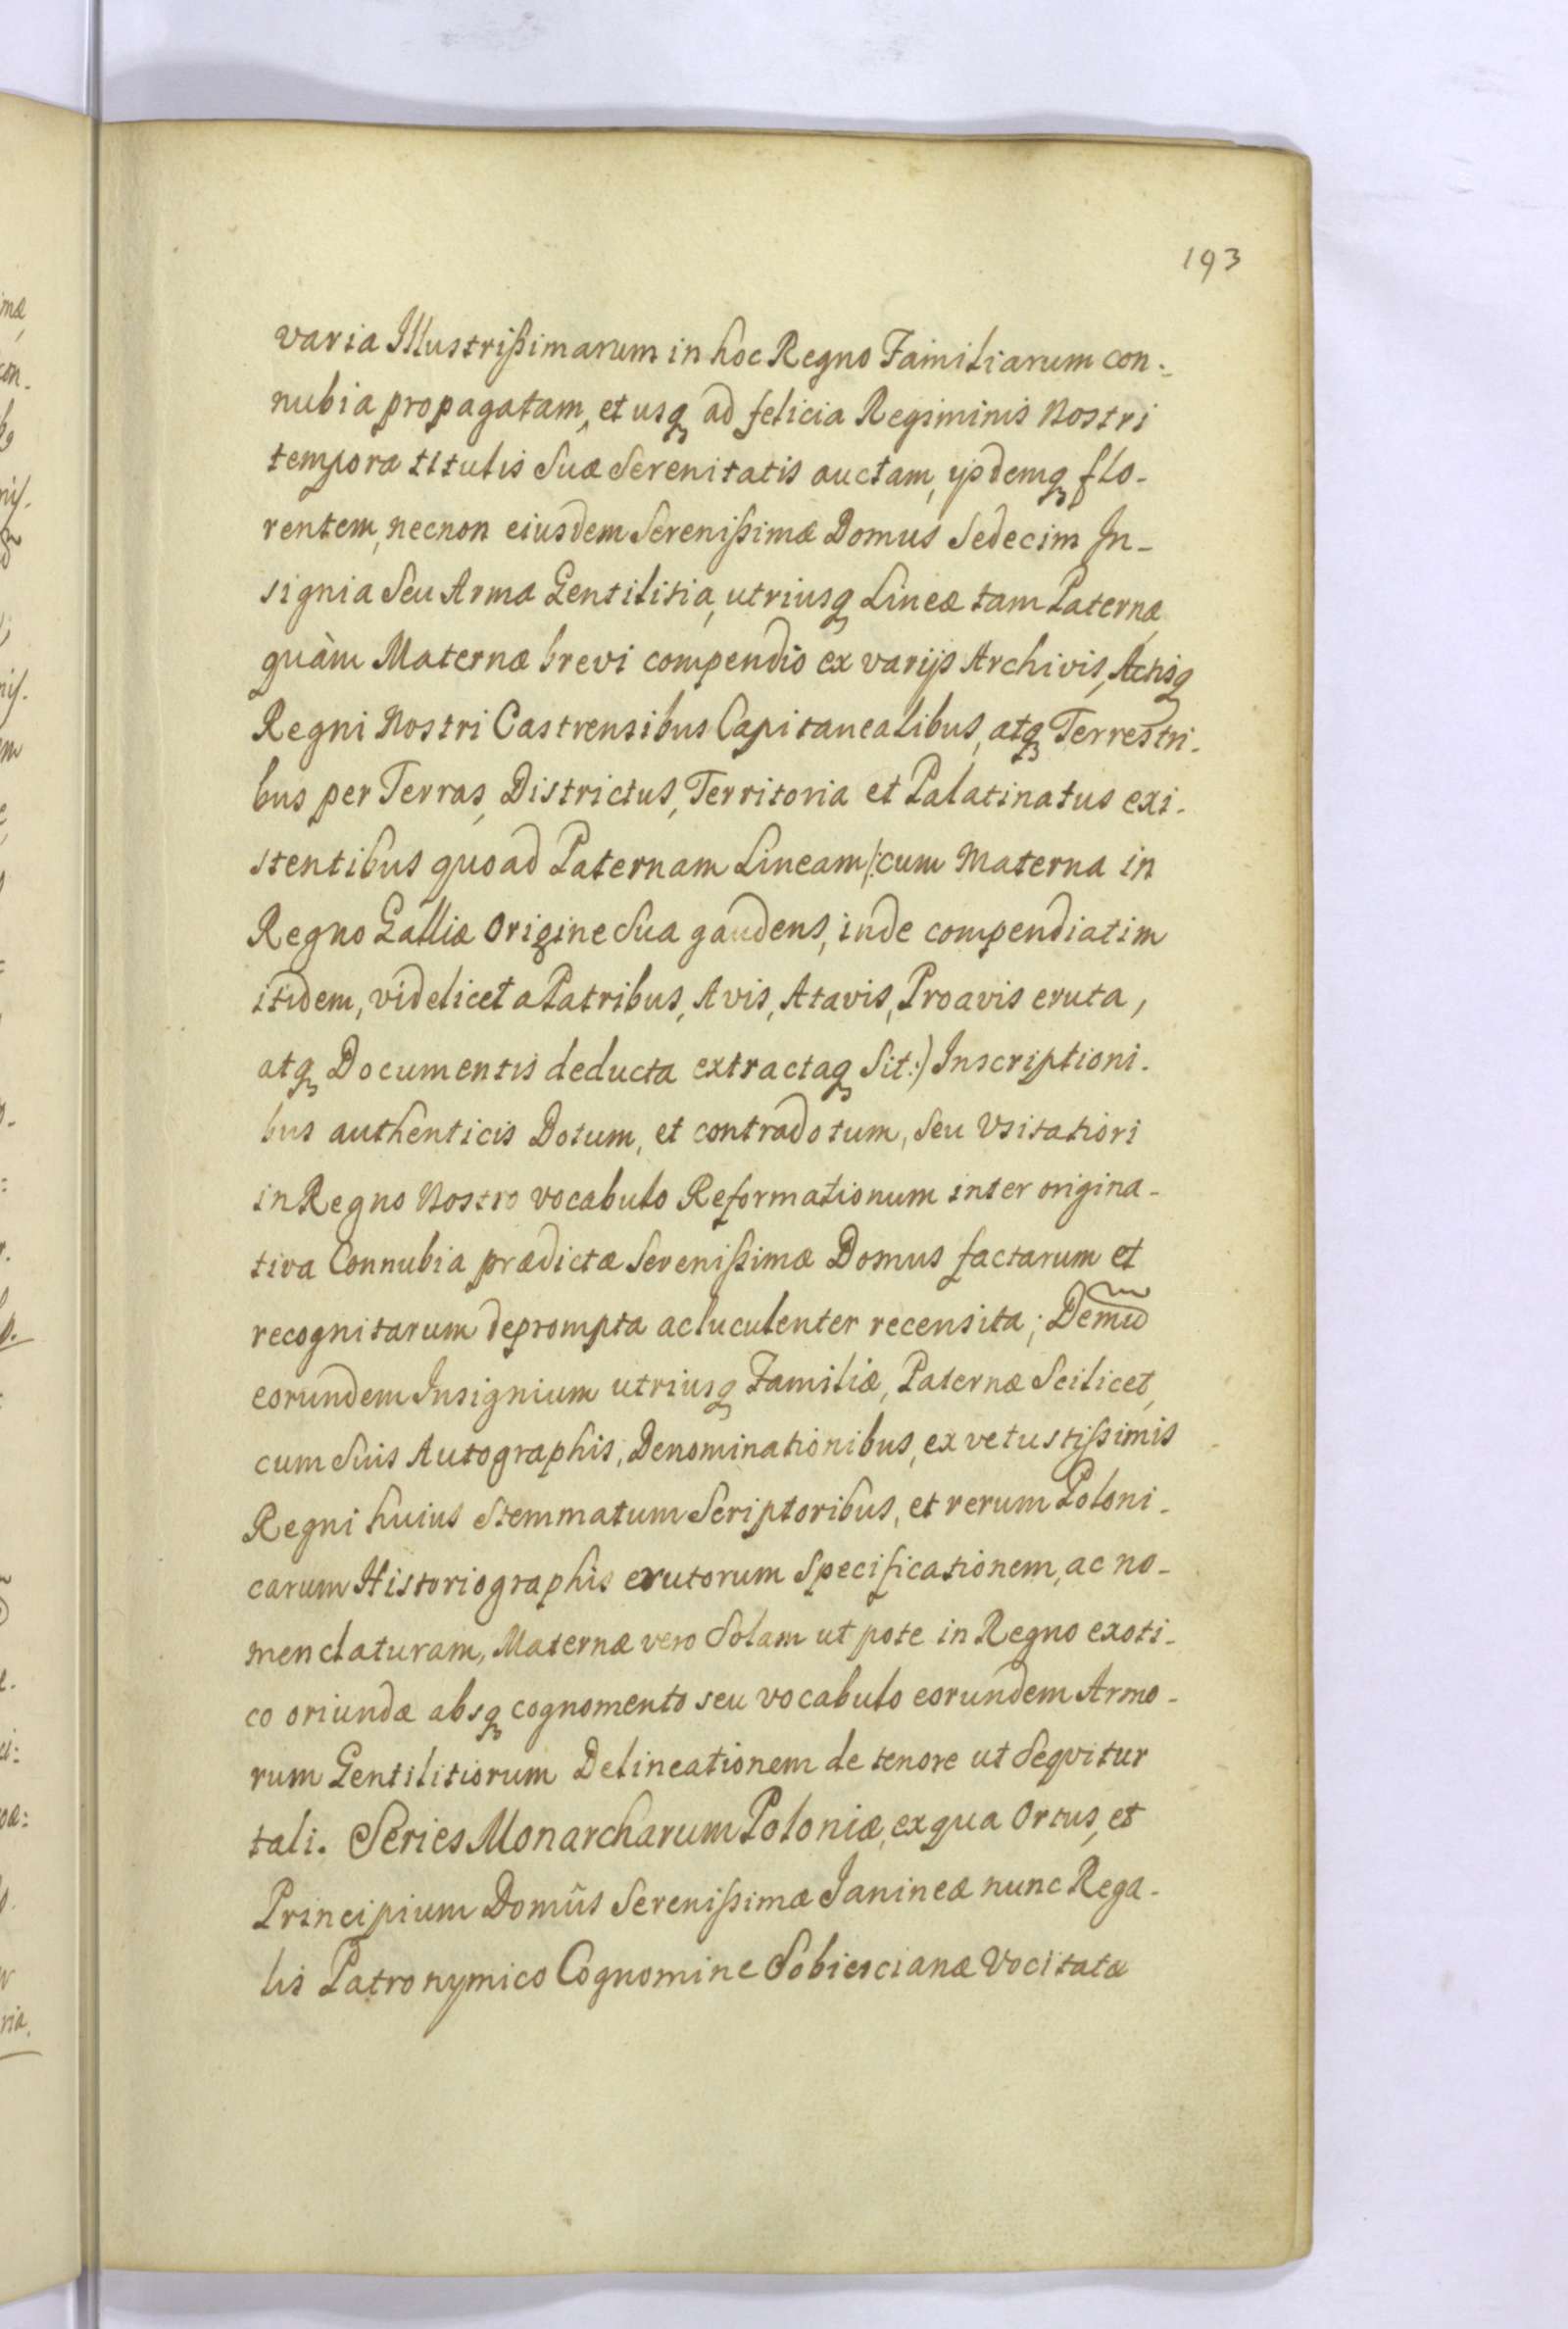 193
varia Illustrißimarum in hoc Regno Familiarum con-
nubia propagatam, et usq ad felicia Regiminis Nostri
tempora titulis Suæ Serenitatis auctam, ijsdemq flo-
rentem, necnon eiusdem Serenißimæ Domus Sedecim In-
signia Seu Arma Gentilitia, utriusq Lineæ tam Paternæ
quàm Maternæ brevi compendio ex varijs Archivis, Actisq
Regni Nostri Castrensibus Capitanealibus, atq Terrestri-
bus per Terras, Districtus, Territoria et Palatinatus exi-
stentibus quoad Paternam Lineam /:cum Materna in
Regno Galliæ Origine Sua gaudens, inde compendiatim
itidem, videlicet a Patribus, Avis, Atavis, Proavis eruta,
atq Documentis deducta extractaq Sit:) Inscriptioni-
bus authenticis Dotum, et contradotum, Seu Vsitatiori
in Regno Nostro vocabulo Reformationum inter origina-
tiva Connubia prædictæ Serenißimæ Domus factarum et
recognitarum deprompta ac luculenter recensita; Demũ
eorundem Insignium utriusq Familiæ, Paternæ Scilicet,
cum Suis Autographis, Denominationibus, ex vetustißimis
Regni huius Stemmatum Scriptoribus, et rerum Poloni-
carum Historiographis erutorum Specificationem, ac no-
menclaturam, Maternæ vero Solam ut pote in Regno exoti-
co oriundæ absq cognomento seu vocabulo eorundem Armo-
rum Gentilitiorum Delineationem de tenore ut Seqvitur
tali. Series Monarcharum Poloniæ, ex qua Ortus, et
Principium Domûs Serenißimæ Janineæ nunc Rega-
lis Patronymico Cognomine Sobiescianæ Vocitatæ